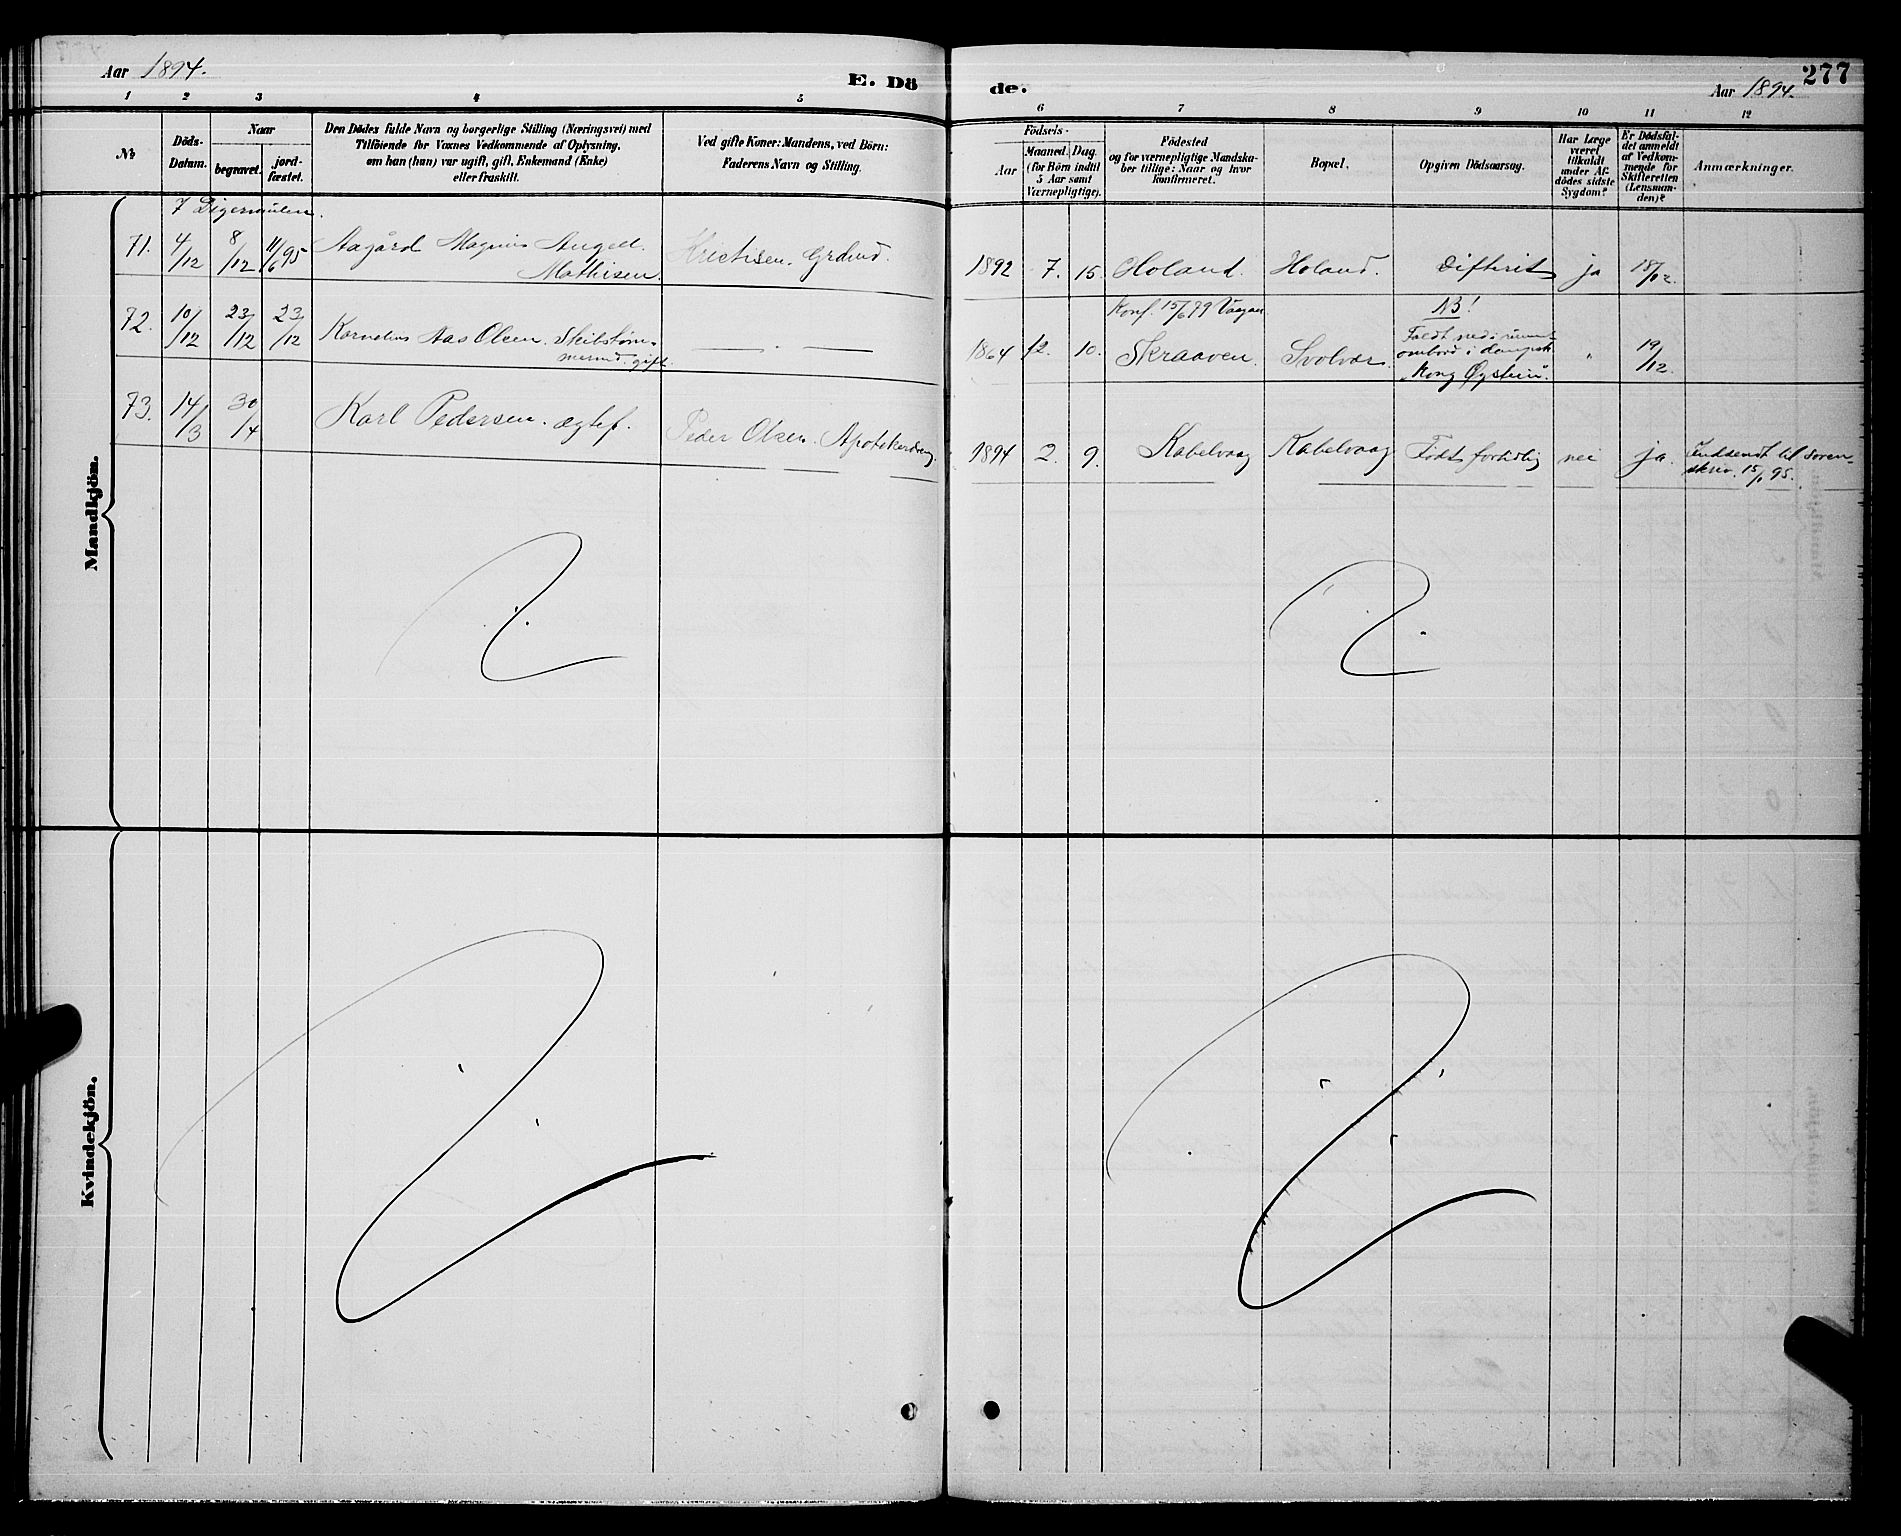 Aar 1894.
E. Dö
de.
Aar 1894.
277
1 2 3 4 5 6 7 8 9 10 11 12
№
Döds-
Datum.
Naar
begravet.
jord-
fæstet.
Den Dödes fulde Navn og borgerlige Stilling (Næringsvei) med
Tilföiende for Voxnes Vedkommende af Oplysning,
om han (hun) var ugift, gift, Enkemand (Enke)
eller fraskilt.
Ved gifte Koner: Mandens, ved Börn:
Faderens Navn og Stilling.
Födsels-
Aar
Maaned. Dag.
(for Börn indtil
5 Aar samt
Værnepligtige).
Födested
og for værnepligtige Mandska-
ber tillige: Naar og hvor
konfirmeret.
Bopæl.
Opgiven Dödsaarsag.
Har Læge
været
tilkaldt
under Af-
dödes sidste
Sygdom?
Er Dödsfal-
det anmeldt
af Vedkom-
mende for
Skifteretten
(Lensman-
den)?
Anmærkninger.
Mandkjön.
7 Digermulen.
71. 4/12 8/12 11/6 95 Aagård Magnus Angell
Mathisen.
Kristisen. Grdmd.
1892 7. 15. Holand. Holand. Difterit ja 18/12.
72. 10/12 23/12 23/12 Kornelius Aas Olsen. Skibstøm-
mermd. gift.
— . —
Konf. 15/6 79 Vaagan
NB!
1864 12. 10. Skraaven. Svolvær. Faldt ned i rummet
ombord i dampsk.
„Kong Øystein".
" 19/12.
73. 14/3 30/4 Karl Pedersen. ægtef. Peder Olsen. Apothekerdreng.
1894 2. 9. Kabelvaag Kabelvaag Født fortidlig nei ja. Indsendt til soren-
skriv. 15/1 95.
Kvindekjön.